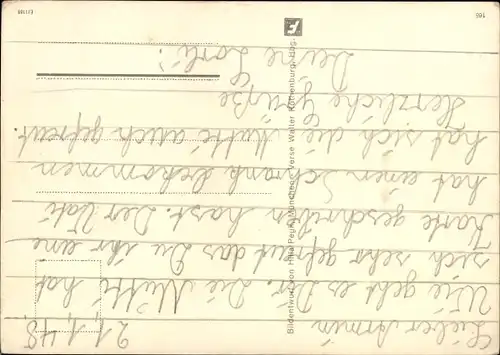 21.1.48.
Lieber Armin
Wie geht es Dir. Die Mutti hat
sich sehr gefreut das Du ihr eine
Karte geschriben hast. Der Vati
hat einen Schrank bekommen
hat sich die Mutti auch gefreut
Herzliche Grüße
Deine Lorli.
Bildentwurf von Hilla Peyk, München Verse Walter Rothenburg, Hbg.
165